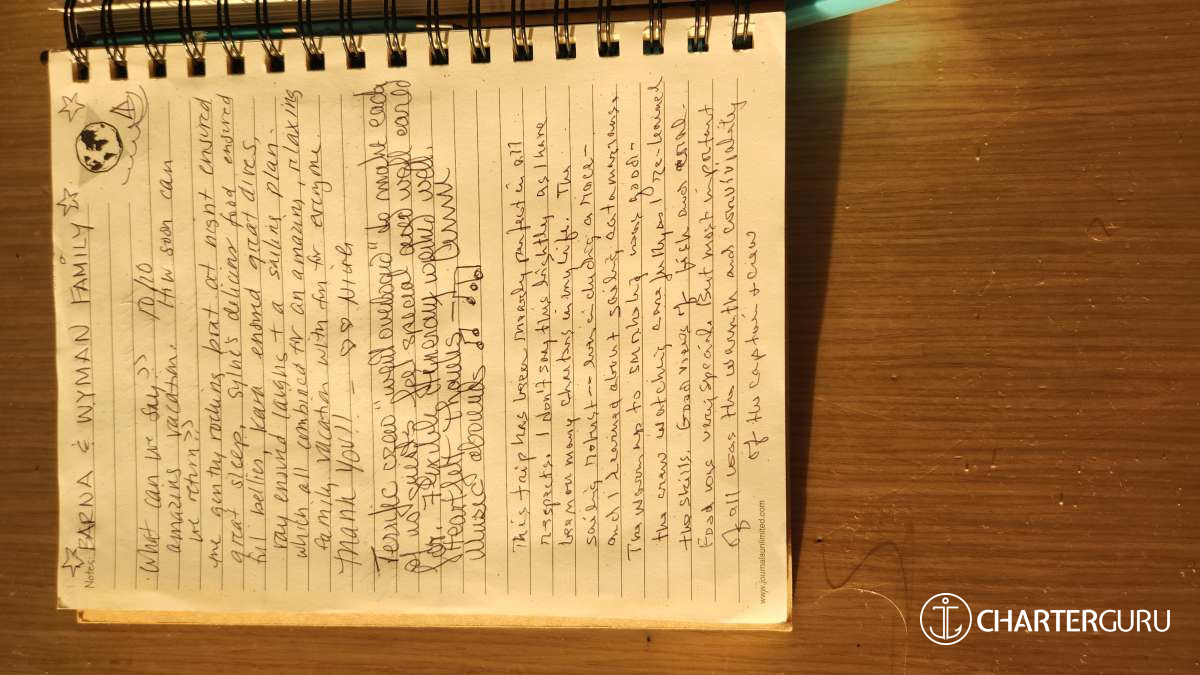 Notes:
FARNA & NYMAN FAMILY
What can we say?? 10/10
amazing vacation. How soon can
we return??
The gently rocking boat at night ensured
great sleep, Sylvie's delicious food ensured
full bellies, Kara ensured great dives,
Ray ensured laughs + a sailing plan
which all combined for an amazing, relaxing
family vacation with fun for everyone.
Thank You!! –
Terrific crew "went overboard" to make each
of us guests feel special and well cared
for. Flexible itinerary worked well.
Heartfelt thanks –
Music abounds
This trip has been nearly perfect in all
respects. I don't say this lightly as I have
been on many charters in my life. The
sailing robust – even including a race –
and I learned about sailing catamarans.
The warm up to snorkeling was good –
the crew watching carefully as I re-learned
the skills. Good views of fish and coral.
Food was very special. But most important
of all was the warmth and conviviality
of the captain + crew
www.journalsunlimited.com
CHARTERGURU